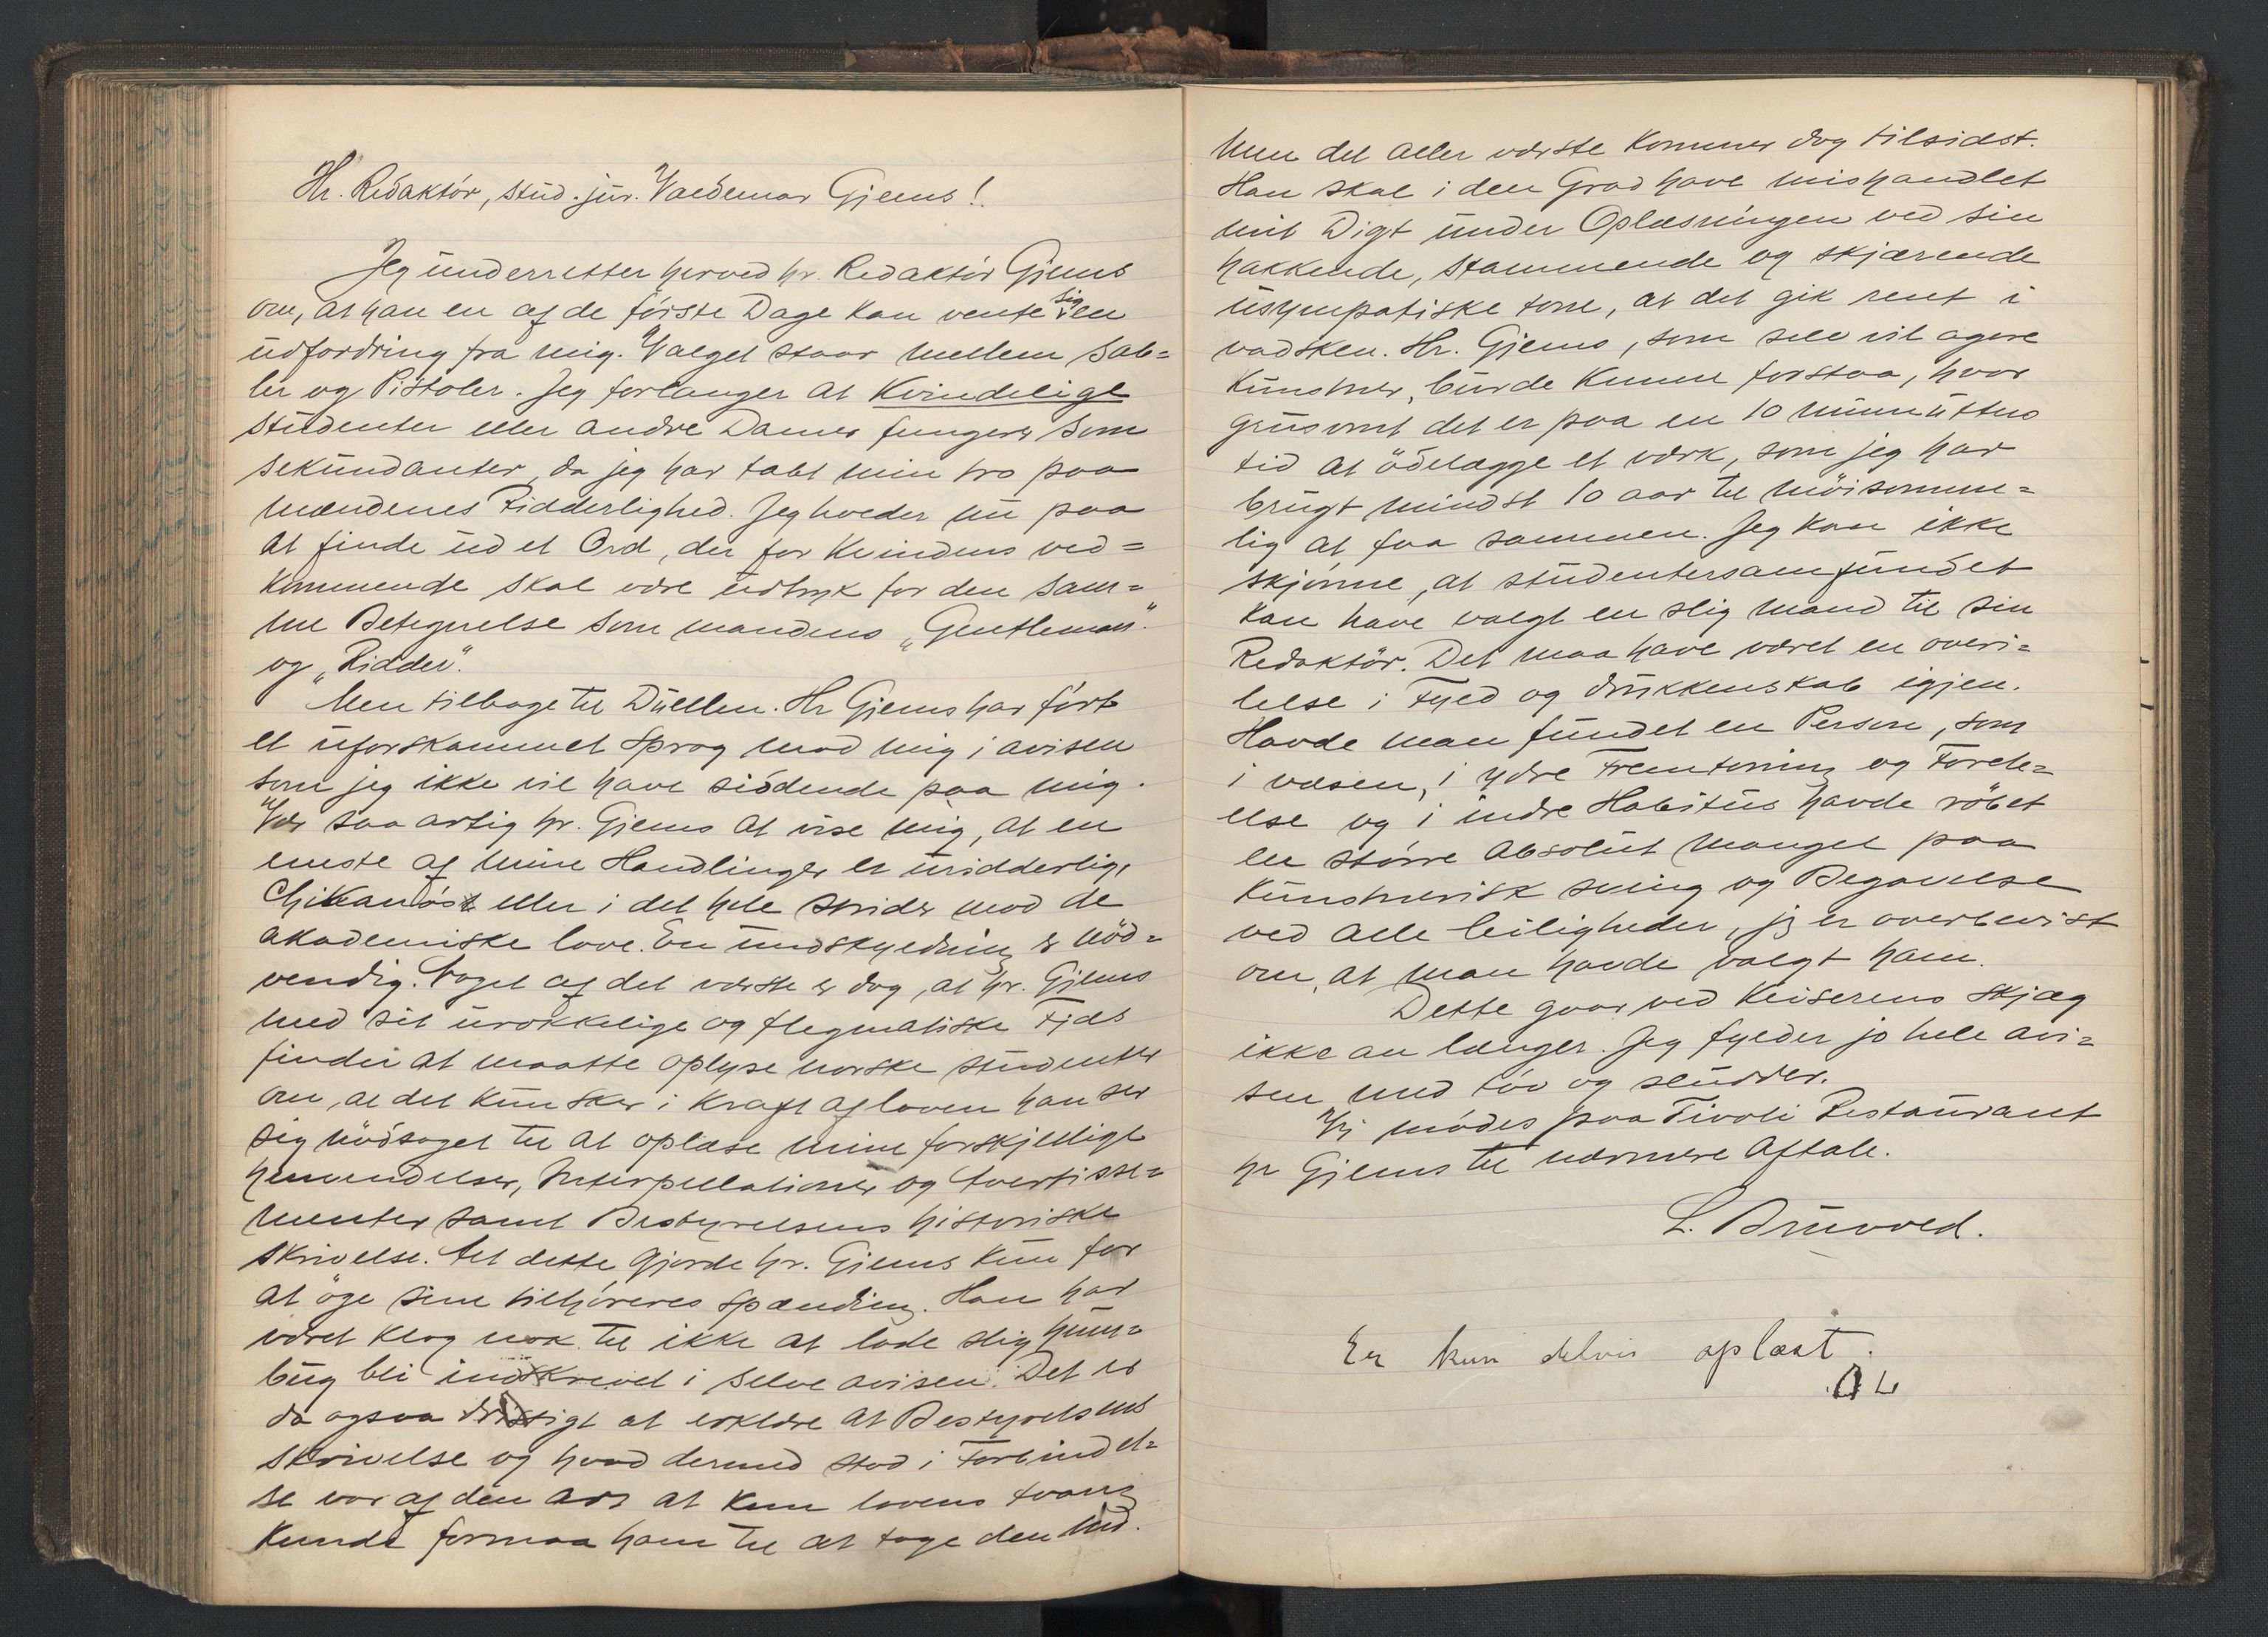 Hr. Redaktör, stud. jur. Valdemar Gjems!
Jeg underretter herved hr. Redaktör Gjems
om, at han en af de förste Dage kan vente sig en
udfordring fra mig. Valget staar mellem Sab=
ler og Pistoler. Jeg forlanger at Kvindelige
studenter eller andre Damer fungerer som
sekundanter, da jeg har tabt min tro paa
mændenes Ridderlighed. Jeg hveder nu paa
at finde ud et Ord, der for Kvindens ved=
kommende skal være udtryk for den sam=
me Betegnelse som mandens „Gentleman"
og „Ridder".
Men tilbage til Duellen. Hr Gjems har fört
et uforskammet Sprog mod mig i avisen
som jeg ikke vil have siddende paa mig.
Vær saa artig hr. Gjems at vise mig, at en
eneste af mine Handlinger er uridderlig,
Chikanöst eller i det hele strider mod de
akademiske love. En undskyldning er nöd=
vendig. Noget af det værste er dog, at hr. Gjems
med sit urokkelige og flegmatiske Fjæs
finder at maatte oplyse norske studenter
om, at det kun sker i Kraft af loven han ser
sig nödsaget til at oplæse mine forskjellige
henvendelser, Interpellationer og Avertisse=
menter samt Bestyrelsens historiske
skrivelse. Alt dette gjorde hr. Gjems kun for
at öge sine tilhöreres Spænding. Han har
været klog nok til ikke at lade slig hum=
bug bli indskrevet i selve avisen. Det er
da ogsaa dristigt at erklære at Bestyrelsens
skrivelse og hvad dermed stod i Forbindel=
se var af den art at kun lovens tvang
kunde formaa ham til at tage den med.
Men det aller værste kommer dog tilsidst.
Han skal i den Grad have mishandlet
mit Digt under Oplæsningen ved sin
hakkende, stammende og skjærende
usympatiske tone, at det gik rent i
vadsken. Hr. Gjems, som selv vil agere
kunstner, burde kunne forstaa, hvor
grusomt det er paa en 10 minutters
tid at ödelægge et værk, som jeg har
brugt mindst 10 aar til möisomme=
lig at faa sammen. Jeg kan ikke
skjönne, at studentersamfundet
kan have valgt en slig mand til sin
Redaktör. Det maa have været en overi=
lelse i Fyld og drukkenskab igjen.
Havde man fundet en Person, som
i væsen, i ydre Fremtoning og Forete=
else og i indre Habitus havde röbet
en större absolut mangel paa
kunstnerisk sving og Begavelse
ved alle leiligheder, jeg er overbevist
om, at man havde valgt ham.
Dette gaar ved Keiserens Skjæg
ikke an længer. Jeg fylder jo hele avi=
sen med töv og sludder.
Vi mödes paa Tivoli Restaurant
hr Gjems til nærmere Aftale.
L. Bruvold.
Er kun delvis oplæst.